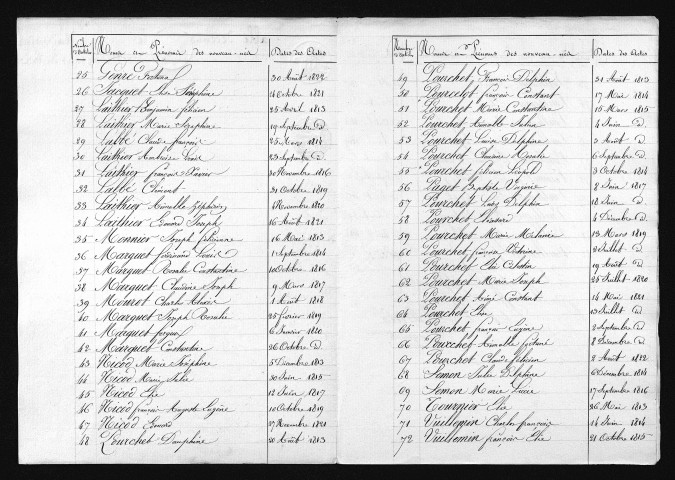 Noms et Prénoms des nouveau-nés Dates des Actes
25 Genre 30 Août 1822
26 Jacquet Joséphine 4 Octobre 1821
27 Laithier Benjamin 25 Avril 1813
28 Laithier Marie Joséphine 19 Septembre d.
29 Labbé Claude françois 25 Mars 1814
30 Laithier Louis 23 Septembre d.
31 Laithier françois Xavier 30 Novembre 1816
32 Labbé Clément 31 Octobre 1819
33 Laithier Zéphirin 4 Novembre 1820
34 Laithier Edouard Joseph 16 Août 1821
35 Monnier Joseph 16 Mai 1813
36 Marguet Louis 1 Septembre 1814
37 Marguet Rosalie Constantine 10 Octobre 1816
38 Marguet Joseph 9 Mars 1817
39 Mourot Charles Alexis 1 Août 1818
40 Marguet Joseph Rosalie 25 février 1819
41 Marguet 6 Janvier 1820
42 Marguet Constantine 26 Octobre d.
43 Nicod Marie Joséphine 5 Décembre 1813
44 Nicod Marie Julie 30 Juin 1815
45 Nicod Elie 12 Juin 1817
46 Nicod françois Auguste Eugène 10 Octobre 1819
47 Nicod Edouard 27 Novembre 1821
48 Pourchet Dauphine 20 Août 1813
Noms et Prénoms des nouveau-nés Dates des Actes
49 Pourchet François Delphin 31 Août 1813
50 Pourcelot françois Constant 17 Mai 1814
51 Pourchet Marie Constantine 15 Mars 1815
52 Pourchet 4 Juin d.
53 Pourchet Louise Delphine 3 Août d.
54 Pourchet Rosalie 6 Septembre d.
55 Pourchet Léopold 3 Octobre 1814
56 Paget Baptiste 8 Juin 1817
57 Pourchet Delphin 18 Juin d.
58 Pourchet 4 Décembre d.
59 Pourchet Marie Mélanie 13 Mars 1819
60 Pourchet françois 2 Juillet d.
61 Pourchet Célestin 19 Août d.
62 Pourchet Marie Joseph 25 Juillet 1820
63 Pourchet Aimé Constant 14 Mai 1821
64 Pourchet Elie 13 Juillet d.
65 Pourchet françois Eugène 2 Septembre d.
66 Pourchet 8 Décembre d.
67 Pourchet Claude 2 Août 1822
68 Semon Julie Delphine 6 Décembre 1814
69 Semon Marie Lucie 17 Septembre 1816
70 Tournier Elie 26 Mai 1813
71 Vuillemin Charles françois 14 Juin 1814
72 Vuillemin françois Elie 21 Octobre 1815